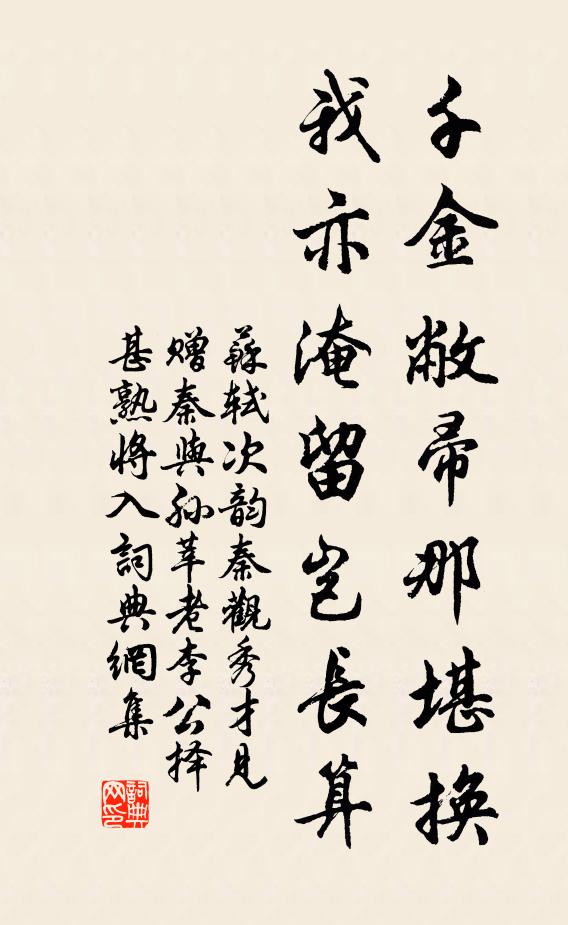 千金敝帚那堪換
我亦淹留豈長算
蘇軾次韵秦觀秀才見
赠秦與孙莘老李公择
甚熟將入詞典網集
詞典
网印